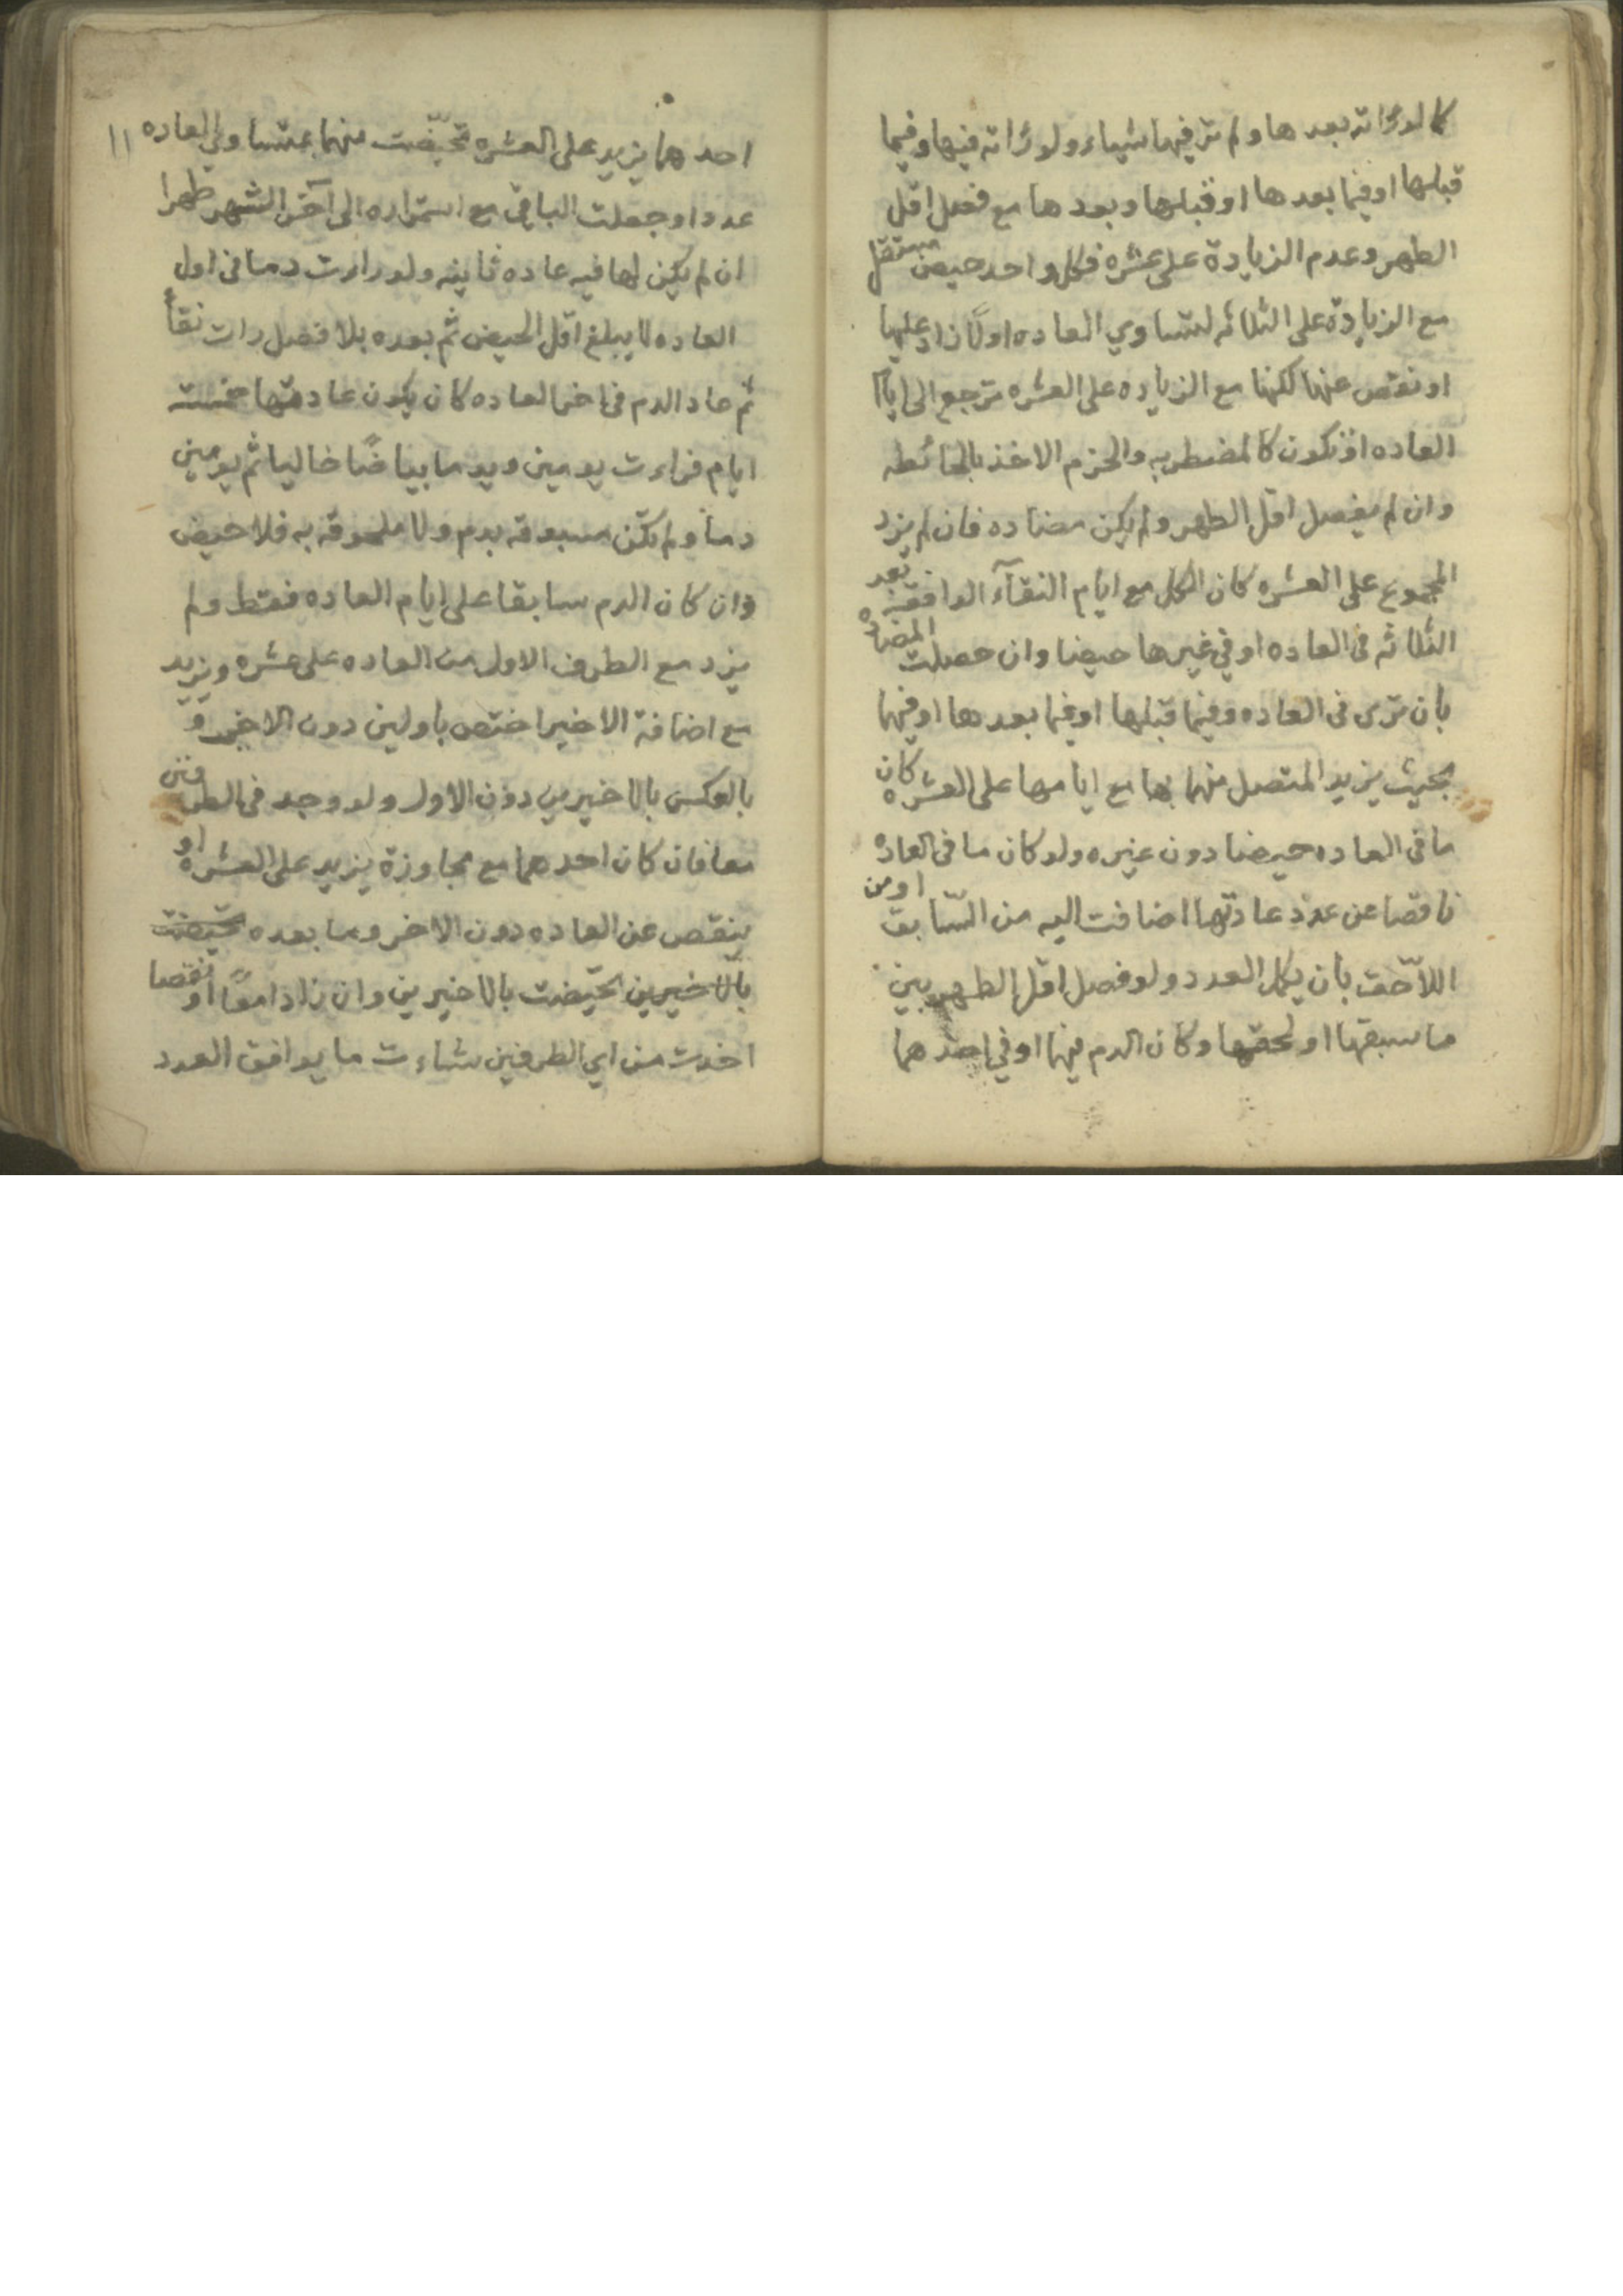 كما لو راته بعدها ولم تر فيها شياء ولو راته فيها وفيما
قبلها او فيما بعدها او قبلها وبعدها مع فصل اقل
الطهر وعدم الزيادة على عشره فكل واحد حيض مستقل
مع الزيادة على الثلاثه لتساوي العاده اولا زاد عليها
او نقص عنها لكنها مع الزياده على العشره ترجع الى ايام
العاده او تكون كالمضطربه والحزم الاخذ بالحائطه
وان لم يفصل اقل الطهر ولم يكن مضاده فان لم يزد
المجموع على العشره كان الكل مع ايام النقآء الواقعة بعد
الثلاثه فى العاده او في غيرها حيضا وان حصلت المضاده
بان ترى فى العاده وفيما قبلها او فيما بعدها او فيهما
بحيث يزيد المتصل منهما بها مع ايامها على العشره كان
ما فى العاده حيضا دون غيره ولو كان ما فى العاده
ناقصا عن عدد عادتها اضافت اليه من السّابق او من
اللاّحق بان يكمل العدد ولو فصل اقل الطهر بين
ما سبقها او لحقها وكان الدم فيهما او في احدهما
١١
احدهما يزيد على العشره تحيّضت منهما بمتساوي العاده
عددا وجعلت الباقي مع استمراره الى آخر الشهر طهرا
ان لم يكن لها فيه عاده ثانيه ولو راءت دما فى اول
العاده لا يبلغ اقل الحيض ثم بعده بلا فصل رات نقأ
ثم عاد الدم فى اخر العاده كان يكون عادتها خمست
ايام فراءت يومين ويوما بياضًا خاليا ثم يومين
دما ولم تكن مسبوقه بدم ولا ملحوقه به فلا حيض
وان كان الدم سابقا على ايام العاده فقط ولم
يزد مع الطرف الاول من العاده على عشره ويزيد
مع اضافة الاخير اختص باولين دون الاخير و
بالعكس بالاخيرين دون الاول ولو وجد فى الطرفين
معا فان كان احدهما مع مجاوزة يزيد على العشره او
ينقص عن العاده دون الاخر وما بعده تحيّضت
بالاخيرين تحيّضت بالاخيرين وان زادا معًا او نقصا
اخذت من اي الطرفين شاءت ما يوافق العدد